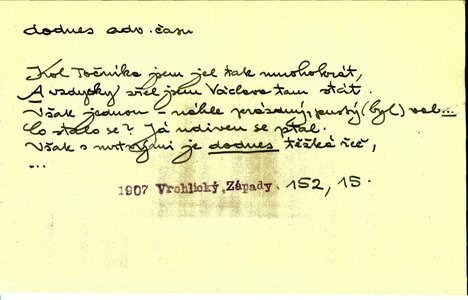 dodnes adv. času
Kol Točníka jsem jel tak mnohokrát,
A vzdycky zřel jsem Václava tam stát.
Však jednou – náhle prázdný, pustý (byl) val...
Co stalo se? Já udiven se ptal.
Však s mrtvými je dodnes těžká řeč,
...
1907 Vrchlický, Západy. 152, 15.